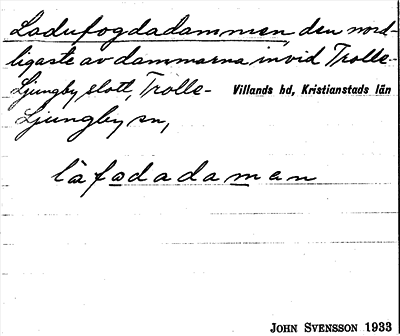 Ladufogdadammen, den nord-
ligaste av dammarna invid Trolle-
Ljungby slott, Trolle- Villands hd, Kristianstads län
Ljungby sn,
låfodadamen
JOHN SVENSSON 1933